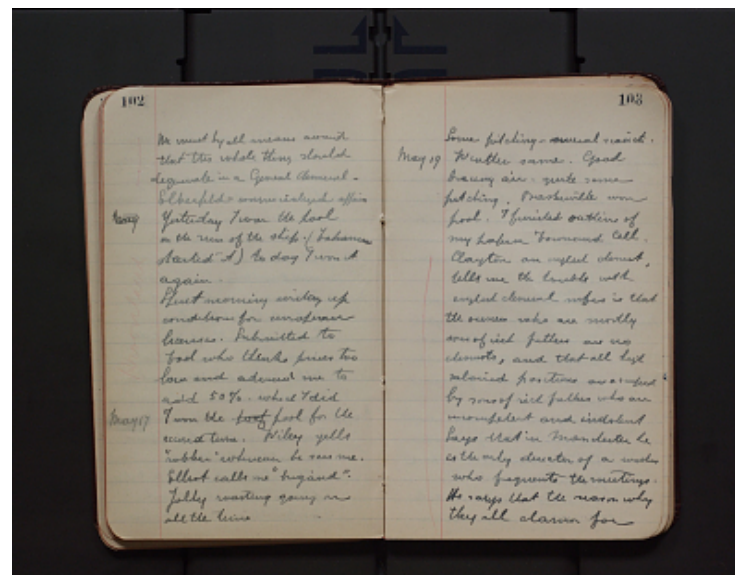 102
We must by all means avoid
that this whole thing should
degenerate in a General Chemical -
Elberfeld - commercialized affair
Yesterday I won the pool
on the run of the ship. (
started it) to day I won it
again.
Spent morning writing up
conditions for
license. Submitted to
Pool who thinks prices too
low and advised me to
add 50%. which I did
May 17 I won the pool for the
second time. Wiley yells
"robber" whenever he sees me.
Elliot calls me "brigand".
Jolly roasting going on
all the time
103
Some pitching - several seasick.
May 19 Weather same. Good
bracing air - quite some
pitching. Baskerville won
pool. I finished outline of
my paper Townsend Cell.
Clayton an english chemist,
tells me the trouble with
english chemical mfrs is that
the owners who are mostly
sons of rich fathers are no
chemists, and that all high
salaried positions are occupied
by sons of rich fathers who are
incompetent and indolent
Says that in Manchester he
is the only director of a works
who frequents the meetings.
He says that the reason why
they all clamor for